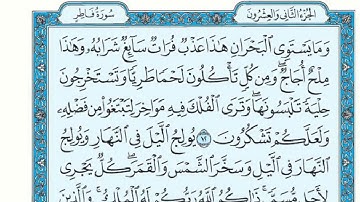 سُورَةُ فَاطِرٍ الجُزءُ الثَّانِي وَالعِشْرُونَ
وَمَا يَسْتَوِى ٱلْبَحْرَانِ هَٰذَا عَذْبٌ فُرَاتٌ سَآئِغٌ شَرَابُهُۥ وَهَٰذَا
مِلْحٌ أُجَاجٌ ۖ وَمِن كُلٍّ تَأْكُلُونَ لَحْمًا طَرِيًّا وَتَسْتَخْرِجُونَ
حِلْيَةً تَلْبَسُونَهَا ۖ وَتَرَى ٱلْفُلْكَ فِيهِ مَوَاخِرَ لِتَبْتَغُوا۟ مِن فَضْلِهِۦ
وَلَعَلَّكُمْ تَشْكُرُونَ ١٢ يُولِجُ ٱلَّيْلَ فِى ٱلنَّهَارِ وَيُولِجُ
ٱلنَّهَارَ فِى ٱلَّيْلِ وَسَخَّرَ ٱلشَّمْسَ وَٱلْقَمَرَ ۖ كُلٌّ يَجْرِى
لِأَجَلٍ مُّسَمًّى ۚ ذَٰلِكُمُ ٱللَّهُ رَبُّكُمْ لَهُ ٱلْمُلْكُ ۚ وَٱلَّذِينَ